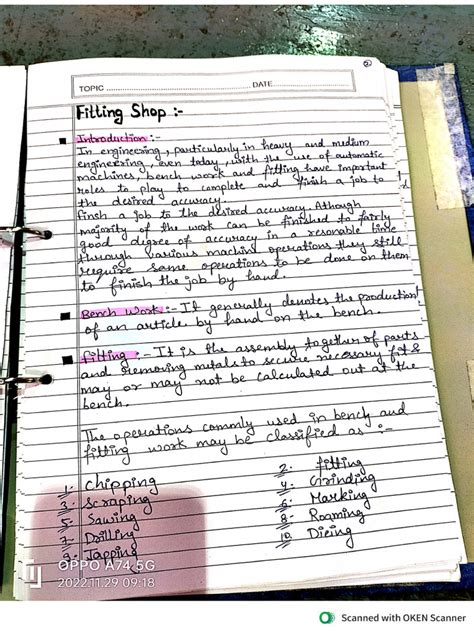 2
TOPIC DATE
Fitting Shop :-
Introduction :-
In engineering, particularly in heavy and medium
engineering, even today, with the use of automatic
machines, bench work and fitting have important
roles to play to complete and finish a job to
the desired accuracy.
finsh a job to the desired accuracy. Although
majority of the work can be finished to fairly
good degree of accuracy in a resonable time
through various machin operations they still
require some operations to be done on them
to finish the job by hand.
Bench Work :- It generally denotes the production
of an article by hand on the bench.
Fitting :- It is the assembly together of parts
and removing metals to secure necessary fit &
may or may not be calculated out at the
bench.
The operations commly used in bench and
fitting work may be classified as :-
1. Chipping 2. fitting
3. Scraping 4. Grinding
5. Sawing 6. Marking
7. Drilling 8. Roaming
9. Tapping 10. Dieing
OPPO A74 5G
2022.11.29 09:18
Scanned with OKEN Scanner